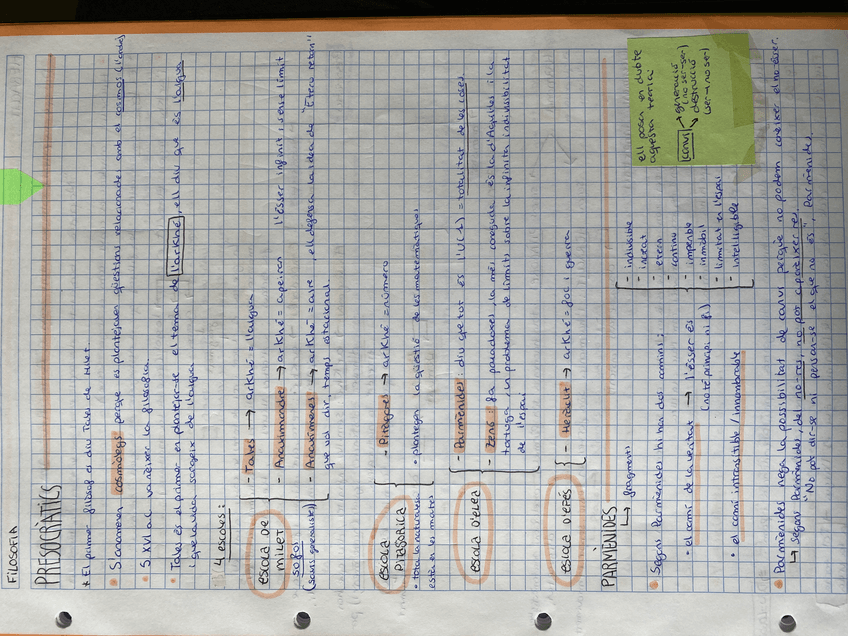 FILOSOFIA
PRESOCRÀTICS
* El primer filòsof es diu Tales de Milet
• S'anomenen cosmòlegs perque es plantejaven qüestions relacionade amb el cosmos (l'ordre)
• S XVI a.C va néixer la filosofia.
• Tales és el primer en plantejar-se el tema de l'arkhé, ell diu que és l'aigua
i que la vida sorgeix de l'aigua.
4 escoles:
ESCOLA DE MILET
SOFOI
(savis generalistes)
- Tales → arkhé = l'aigua
- Anaximandre → arkhé = apeiron l'ésser infinit i sense límit
- Anaxímenes → arkhé = aire, ell defensa la idea de "Etern retorn"
que vol dir, temps estacional.
ESCOLA PITAGÒRICA
• tota la naturalesa
està en les mates
- Pitàgores → arkhé = número
• plantegen la qüestió de les matemàtiques
ESCOLA D'ELEA
- Parmènides: diu que tot és l'U (1) = totalitat de les coses.
- Zenó: fa paradoxes la més coneguda és la d'Aquiles i la
tortuga, un problema de límits sobre la infinita indivisibilitat
de l'espai
ESCOLA D'EFÉS
- Heràclit → arkhé = foc i guerra
PARMÈNIDES
↳ fragments
• Segons Parmènides hi han dos camins:
• el camí de la veritat → l'ésser és
(no té principi ni fi)
- indivisible
- increat
- etern
- continu
- imperible
- immòbil
- limitat en l'espai
- intel·ligible
ell posen en dubte
aquesta teoria
canvi → generació
(no ser-ser)
→ destrucció
(ser → no ser)
• el camí intransitible / innombrable
• Parmènides nega la possibilitat de canvi perquè no podem coneixer el no-ésser.
↳ Segons Parmènides, del no-res, no pot aparèixer res.
"No pot dir-se ni pensar-se el que no és", Parmènides.